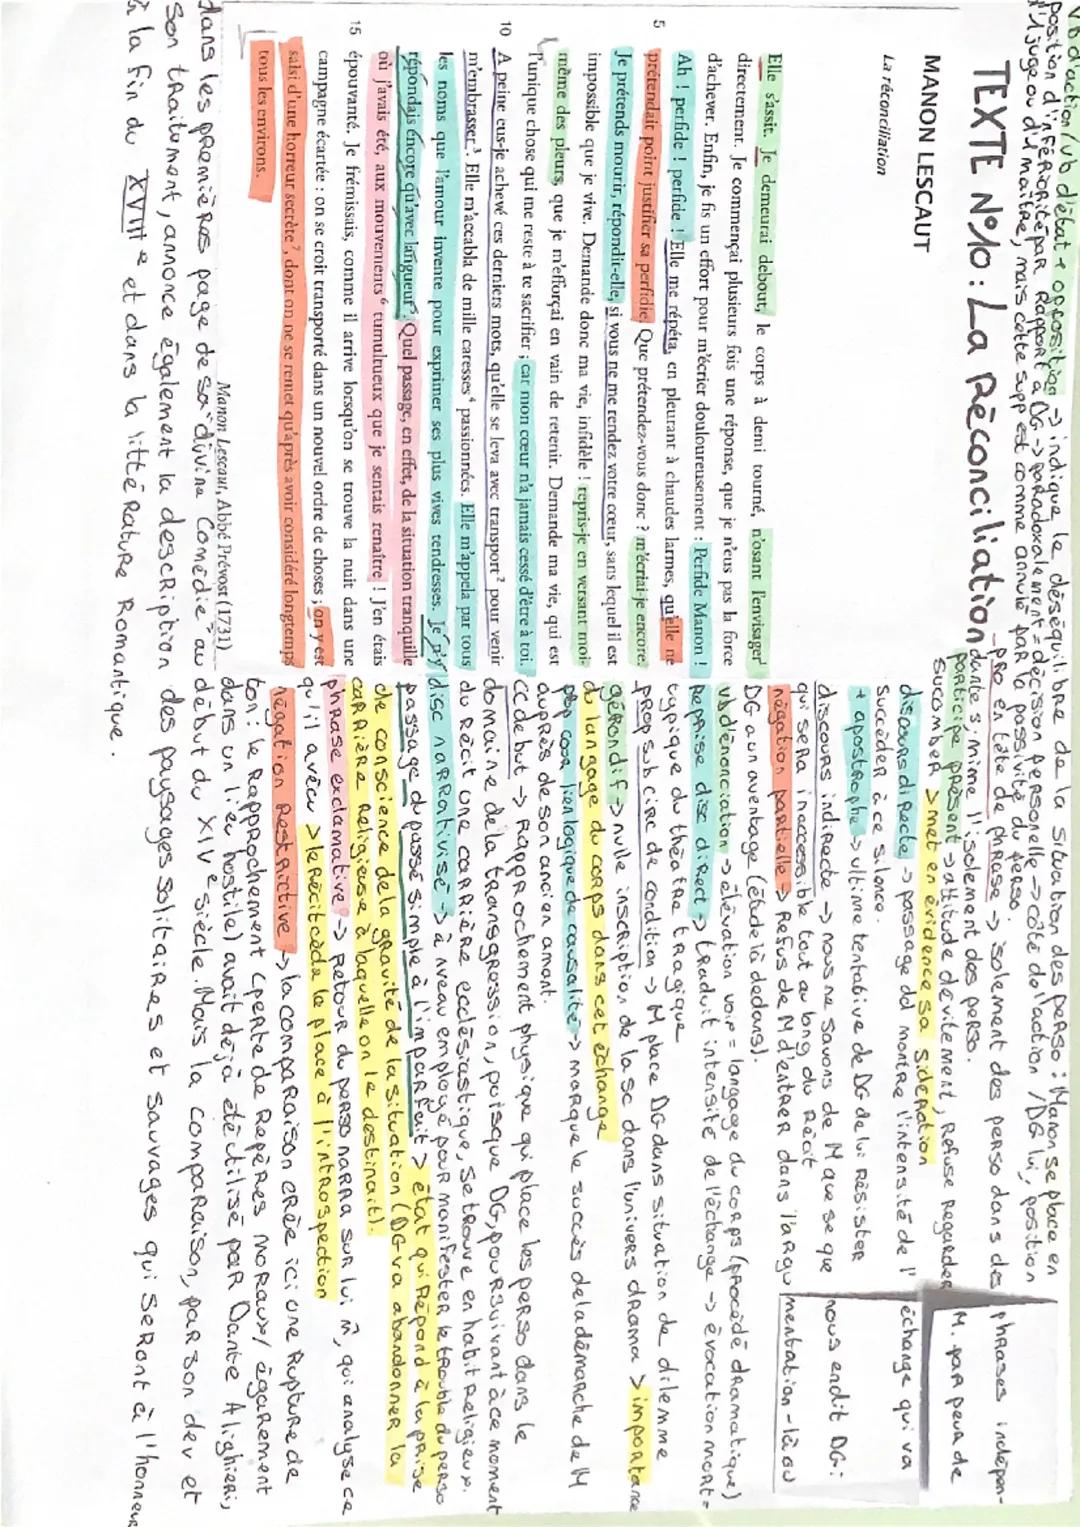 Vb d'action / vb d'état + opposition -> indique le déséquilibre de la situation des perso : Manon se place en
position d'infériorité par rapport à DG -> paradoxalement = décision personelle -> côté de l'action / DG lui, position
juge ou du maitre, mais cette supp est comme annulé par la passivité du perso.
TEXTE N°10 : La Réconciliation
MANON LESCAUT
La réconciliation
Elle s'assit. Je demeurai debout, le corps à demi tourné, n'osant l'envisager
directement. Je commençai plusieurs fois une réponse, que je n'eus pas la force
d'achever. Enfin, je fis un effort pour m'écrier douloureusement : Perfide Manon !
Ah ! perfide ! perfide ! Elle me répéta, en pleurant à chaudes larmes, qu'elle ne
5 prétendait point justifier sa perfidie. Que prétendez-vous donc ? m'écriai-je encore.
Je prétends mourir, répondit-elle, si vous ne me rendez votre cœur, sans lequel il est
impossible que je vive. Demande donc ma vie, infidèle ! repris-je en versant moi-
même des pleurs, que je m'efforçai en vain de retenir. Demande ma vie, qui est
l'unique chose qui me reste à te sacrifier ; car mon cœur n'a jamais cessé d'être à toi.
10 A peine eus-je achevé ces derniers mots, qu'elle se leva avec transport² pour venir
m'embrasser³. Elle m'accabla de mille caresses⁴ passionnées. Elle m'appela par tous
les noms que l'amour invente pour exprimer ses plus vives tendresses. Je n'y
répondais encore qu'avec langueur⁵. Quel passage, en effet, de la situation tranquille
où j'avais été, aux mouvements⁶ tumultueux que je sentais renaître ! J'en étais
15 épouvanté. Je frémissais, comme il arrive lorsqu'on se trouve la nuit dans une
campagne écartée : on se croit transporté dans un nouvel ordre de choses ; on y est
saisi d'une horreur secrète⁷, dont on ne se remet qu'après avoir considéré longtemps
tous les environs.
Manon Lescaut, Abbé Prévost (1731)
pro en tête de phrase -> isolement des perso dans des phrases indépen-
dante s, mime l'isolement des perso.
participe présent -> attitude d'évitement, refuse regarder M. par peur de
succomber > met en évidence sa sidération
discours directe -> passage dd montre l'intensité de l'échange qui va
succéder à ce silence.
+ apostrophe -> ultime tentative de DG de lui résister
discours indirecte -> nous ne savons de M que se que nous en dit DG :
qui sera inaccessible tout au long du récit
négation partielle -> Refus de M d'entrer dans l'argumentation - là où
DG a un aventage (étude là dedans).
vb d'énonciation -> élévation voix = langage du corps (procédé dramatique)
Reprise disc direct -> traduit intensité de l'échange -> évocation mort =
typique du théatre tragique
prop sub circ de condition -> M place DG dans situation de dilemme
gérondif -> nulle inscription de la sc dans l'univers drama > importance
du langage du corps dans cet échange
car lien logique de causalité -> marque le succès de la démarche de M
auprès de son ancien amant.
CC de but -> Rapprochement physique qui place les perso dans le
domaine de la transgression, puisque DG, poursuivant à ce moment
du récit une carrière ecclésiastique, se trouve en habit religieux.
disc narrativisé -> à nveau employé pour manifester le trouble du perso
passage du passé simple à l'imparfait > état qui répond à la prise
de conscience de la gravité de la situation (DG va abandonner la
carrière religieuse à laquelle on le destinait).
phrase exclamative -> retour du perso narra sur lui m̂, qui analyse ce
qu'il a vécu > le récit cède la place à l'introspection
négation restrictive -> la comparaison crée ici une rupture de
ton : le rapprochement (perte de repères moraux / égarement
dans un lieu hostile) avait déjà été utilisé par Dante Alighieri,
dans les premières page de sa "divine Comédie" au début du XIVe siècle. Mais la comparaison, par son dev et
son traitument, annonce également la description des paysages solitaires et sauvages qui seront à l'honneur
à la fin du XVIIIe et dans la littérature Romantique.